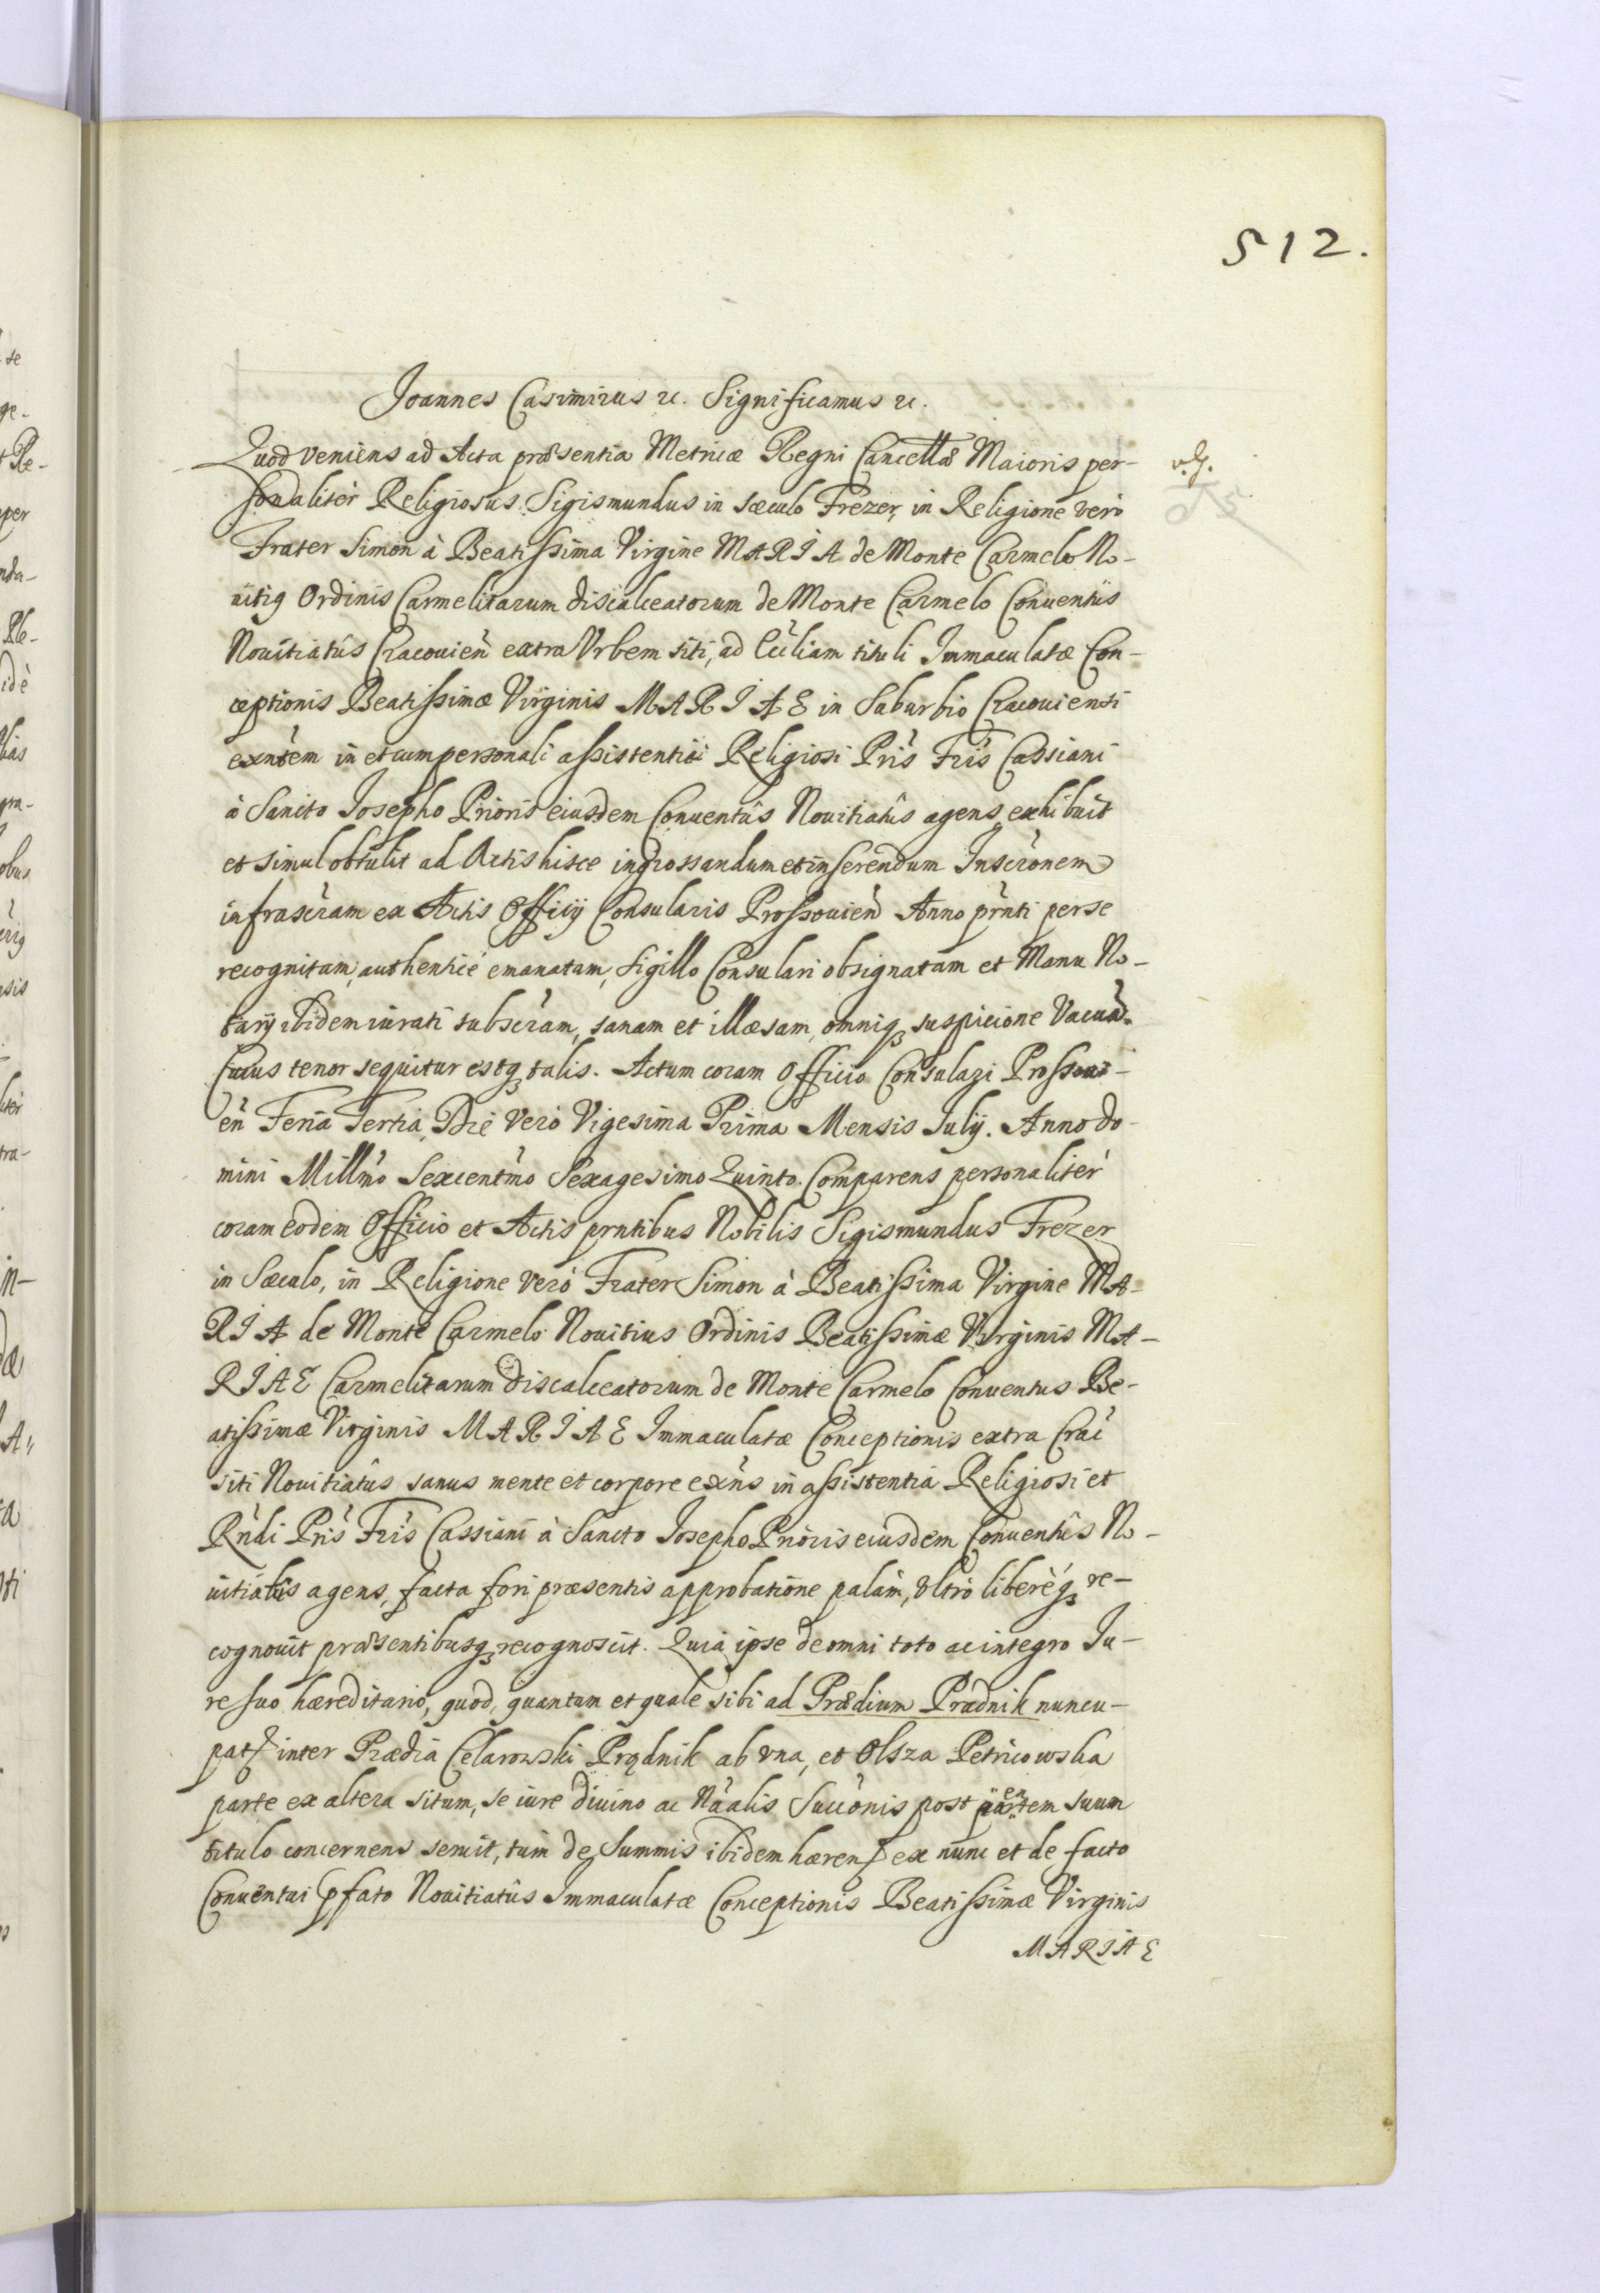 512.
Joannes Casimirus &c. Significamus &c.
Quod veniens ad Acta præsentia Metricæ Regni Cancellæ Maioris per-
sonaliter Religiosus Sigismundus in sæculo Frezer, in Religione verò
Frater Simon à Beatissima Virgine MARIA de Monte Carmelo No-
uitig Ordinis Carmelitarum discalceatorum de Monte Carmelo Conuentûs
Nouitiatûs Cracouień extra Vrbem siti, ad Ecc̃liam tituli Immaculatæ Con-
ceptionis Beatissimæ Virginis MARIAE in Saburbio Cracouiensi
exñtem in et cum personali assistentia Religiosi Pris Fris Cassiani
à Sancto Josepho Prioris eiusdem Conuentûs Nouitiatûs agens, exhibuit
et simul obtulit ad Actis hisce ingrossandum et inserendum Inscr̃onem
infrascr̃am ex Actis Officij Consularis Prossouień Anno pr̃nti per se
recognitam, authenticè emanatam, Sigillo Consulari obsignatam et Manu No-
tarij ibidem iurati subscr̃am, sanam et illæsam, omniq; suspicione Vacuã.
Cuius tenor sequitur estq; talis. Actum coram Officio Consulari Prossoui-
eń Feria Tertia, Die vero Vigesima Prima Mensis Julij. Anno do-
mini Millmo Sexcentmo Sexagesimo Quinto. Comparens personaliter
coram eodem Officio et Actis prntibus Nobilis Sigismundus Frezer
in Sæculo, in Religione verò Frater Simon à Beatissima Virgine MA-
RIA de Monte Carmelo Nouitius Ordinis Beatissimæ Virginis MA-
RIAE Carmelitarum discalceatorum de Monte Carmelo Conuentus Be-
atissimæ Virginis MARIAE Immaculatæ Conceptionis extra Crac̃
siti Nouitiatûs sanus mente et corpore exñs in assistentia Religiosi et
Rndi Pris Fris Cassiani à Sancto Josepho Prioris eiusdem Conuentûs No-
uitiatûs agens, facta fori præsentis approbatione palàm, vltrò liberèq; re-
cognouit præsentibusq; recognoscit. Quia ipse de omni toto ac integro Ju-
re suo hæreditario, quod, quantum et quale sibi ad Prædium Prædnik nuncu-
pat inter Prædia Celarowski Prądnik ab vna, et Olsza Petricowska
parte ex altera situm, se iure diuino ac Nãalis Succ̃onis post parentem suum
titulo concernens seruit, tùm de Summis ibidem hæren ex nunc et de facto
Conuentui pfato Nouitiatûs Immaculatæ Conceptionis Beatissimæ Virginis
MARIAE